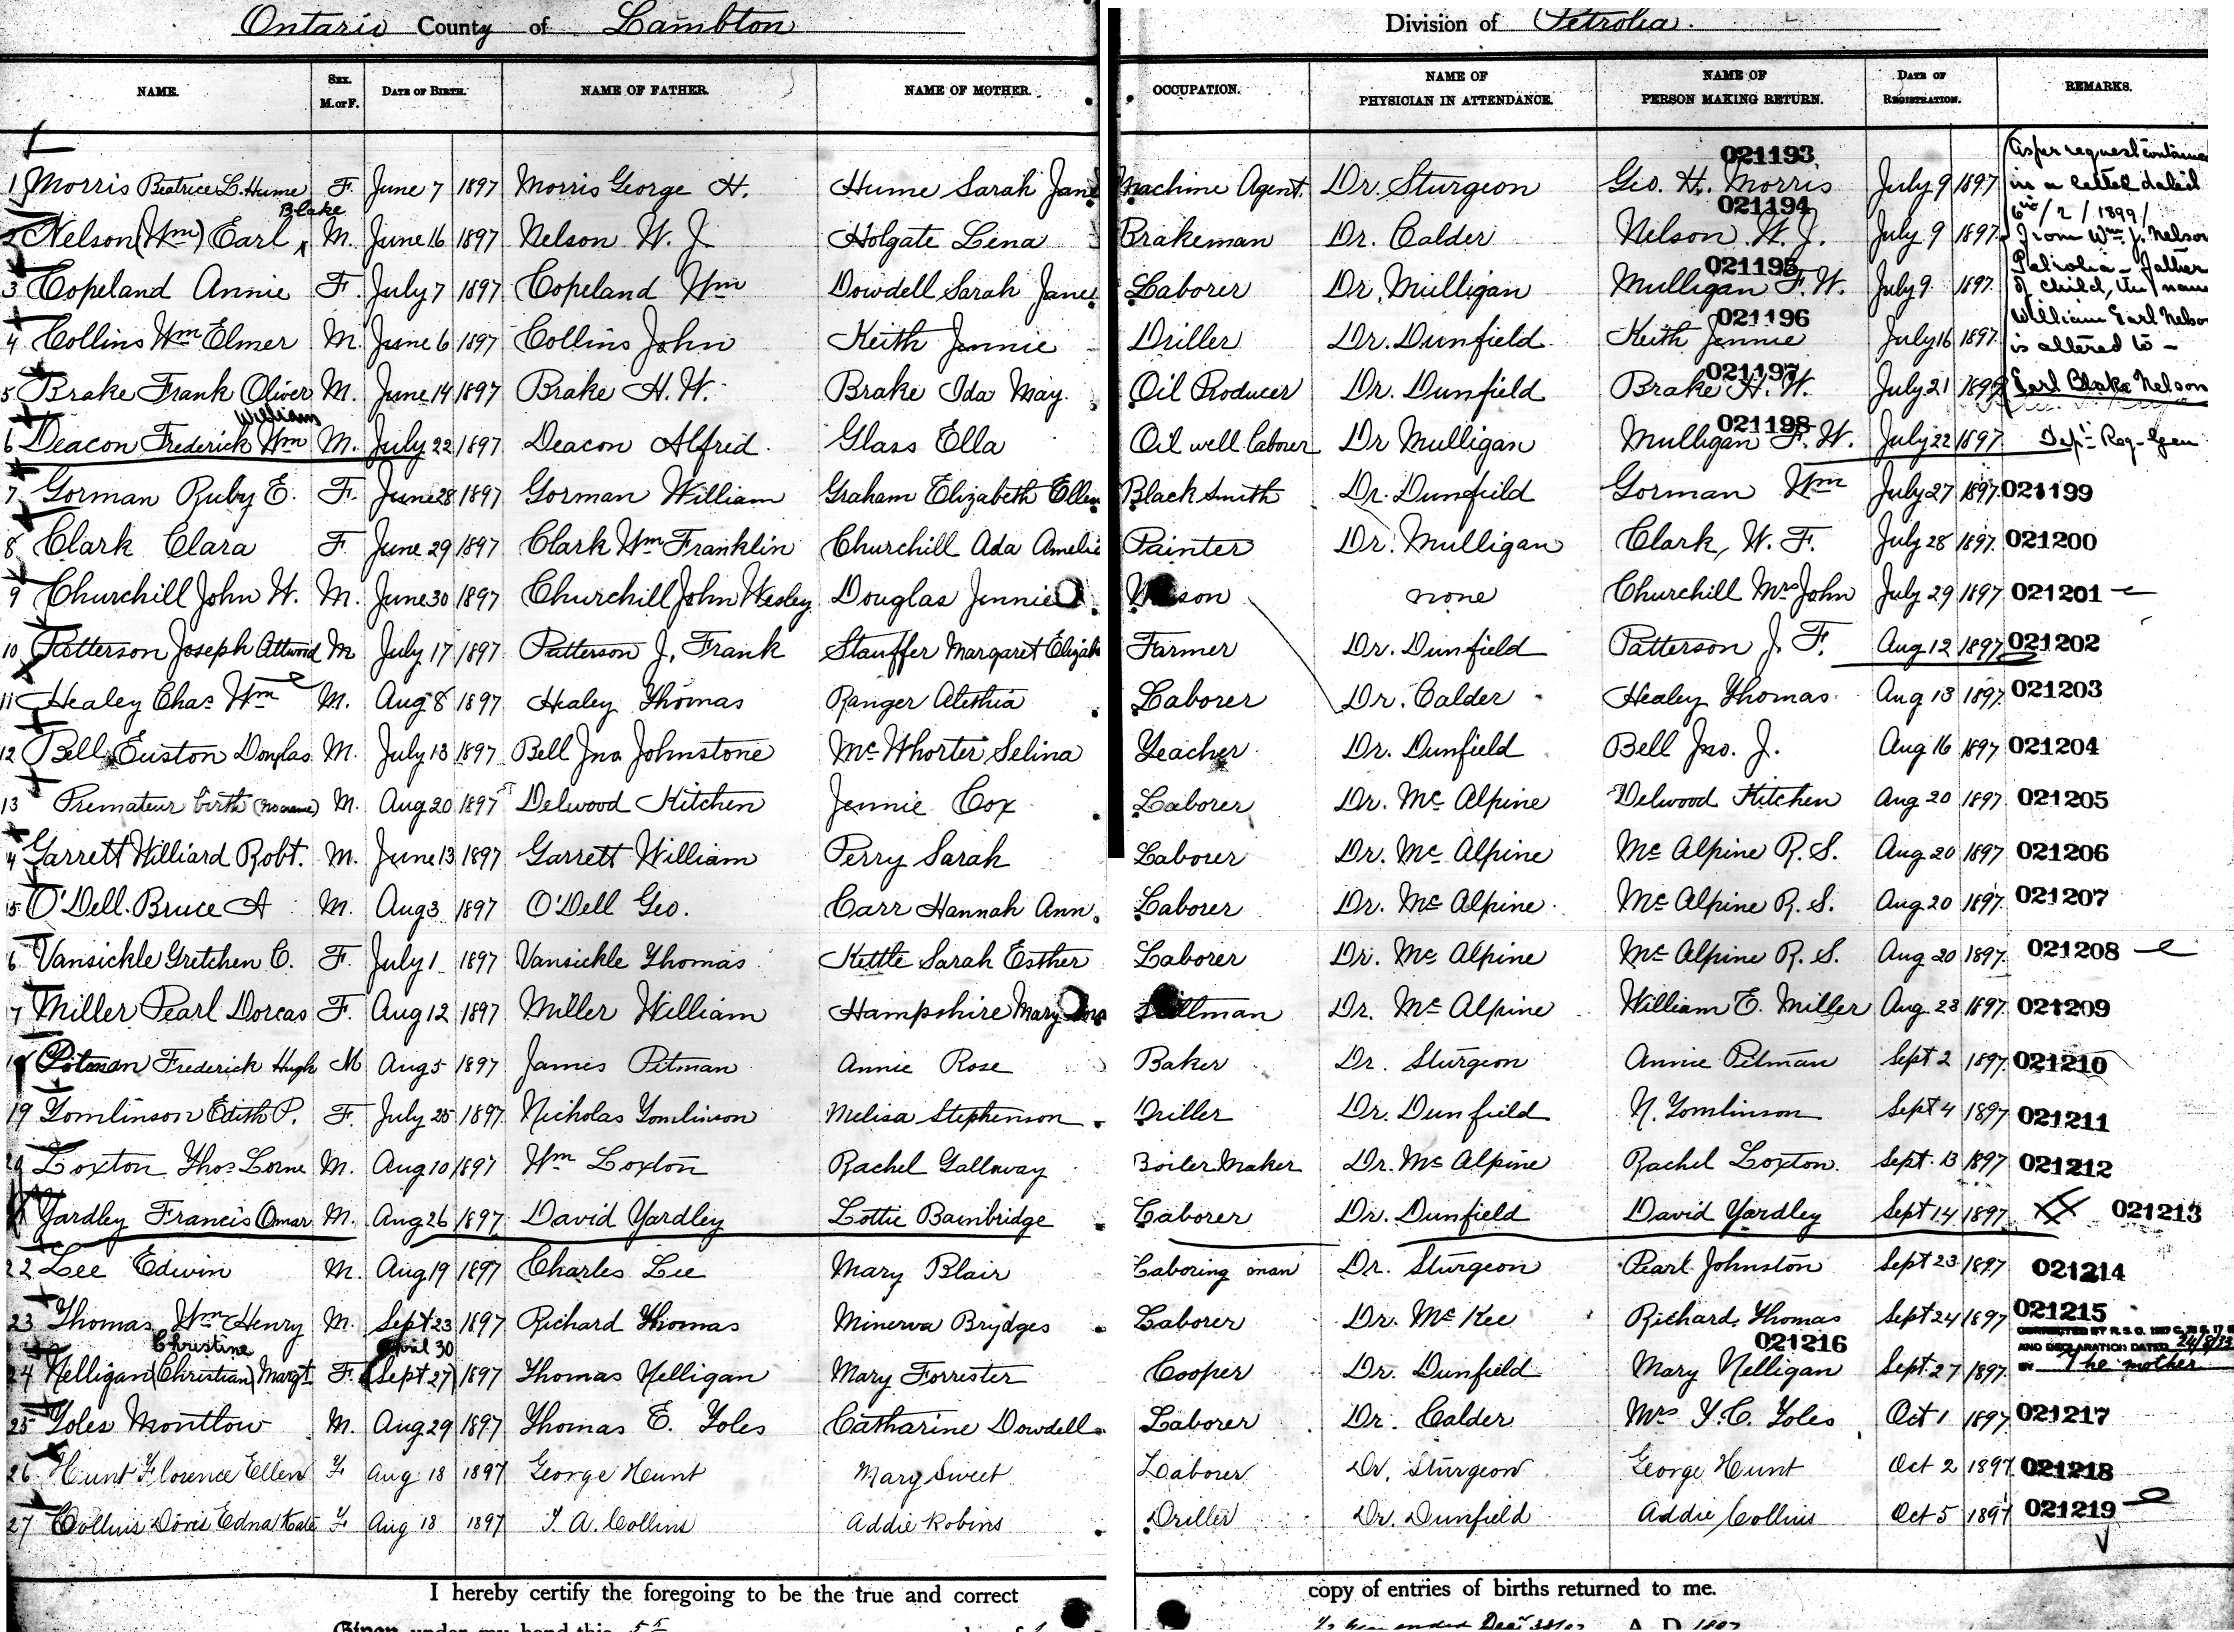 Ontario County of Lambton Division of Petrolia.
NAME. SEX. M. or F. DATE OF BIRTH. NAME OF FATHER. NAME OF MOTHER. OCCUPATION. NAME OF PHYSICIAN IN ATTENDANCE. NAME OF PERSON MAKING RETURN. DATE OF REGISTRATION. REMARKS.
021193
1 Morris Beatrice L. Hume F. June 7 1897 Morris George H. Hume Sarah Jane Machine Agent. Dr. Sturgeon Geo. H. Morris July 9 1897
Blake 021194
2 Nelson (Wm) Earl M. June 16 1897 Nelson W. J. Holgate Lena Brakeman Dr. Calder Nelson W. J. July 9 1897
021195
3 Copeland Annie F. July 7 1897 Copeland Wm Dowdell Sarah Jane Laborer Dr. Mulligan Mulligan F. W. July 9 1897
021196
4 Collins Wm Elmer M. June 6 1897 Collins John Keith Jennie Driller Dr. Dunfield Keith Jennie July 16 1897
021197
5 Brake Frank Oliver M. June 14 1897 Brake H. W. Brake Ida May. Oil Producer Dr. Dunfield Brake H. W. July 21 1897
William 021198
6 Deacon Frederick Wm M. July 22 1897 Deacon Alfred. Glass Ella Oil well labourer Dr Mulligan Mulligan F. W. July 22 1897
As per request contained
in a letter dated
6th/2/1899/
from Wm. J. Nelson
Petrolia - father
of child, the name
William Earl Nelson
is altered to -
Earl Blake Nelson
Dep. Reg-Gen
7 Gorman Ruby E. F. June 28 1897 Gorman William Graham Elizabeth Ellen Black Smith Dr. Dunfield Gorman Wm July 27 1897 021199
8 Clark Clara F. June 29 1897 Clark Wm Franklin Churchill Ada Amelia Painter Dr. Mulligan Clark, W. F. July 28 1897 021200
9 Churchill John W. M. June 30 1897 Churchill John Wesley Douglas Jennie Mason none Churchill Mrs John July 29 1897 021201
10 Patterson Joseph Attwood M July 17 1897 Patterson J. Frank Stauffer Margaret Elizab Farmer Dr. Dunfield Patterson J. F. Aug 12 1897 021202
11 Healey Chas Wm M. Aug 8 1897 Healey Thomas Ranger Alethia Laborer Dr. Calder Healey Thomas Aug 13 1897 021203
12 Bell Euston Douglas M. July 13 1897 Bell Jno Johnstone Mc Whorter Selina Teacher Dr. Dunfield Bell Jno. J. Aug 16 1897 021204
13 Premateur birth (No name) M. Aug 20 1897 Delwood Kitchen Jennie Cox Laborer Dr. Mc Alpine Delwood Kitchen Aug 20 1897 021205
4 Garrett Williard Robt. M. June 13 1897 Garrett William Perry Sarah Laborer Dr. Mc Alpine Mc Alpine R. S. Aug 20 1897 021206
5 O'Dell Bruce A M. Aug 3 1897 O'Dell Geo. Carr Hannah Ann Laborer Dr. Mc Alpine Mc Alpine R. S. Aug 20 1897 021207
6 Vansickle Gretchen C. F. July 1 1897 Vansickle Thomas Kettle Sarah Esther Laborer Dr. Mc Alpine Mc Alpine R. S. Aug 20 1897 021208
7 Miller Pearl Dorcas F. Aug 12 1897 Miller William Hampshire Mary Dr. Mc Alpine William E. Miller Aug 23 1897 021209
18 Pitman Frederick Hugh M Aug 5 1897 James Pitman Annie Rose Baker Dr. Sturgeon Annie Pitman Sept 2 1897 021210
19 Tomlinson Edith P. F. July 25 1897 Nicholas Tomlinson Melisa Stephenson Driller Dr. Dunfield N. Tomlinson Sept 4 1897 021211
20 Loxton Thos Lorne M. Aug 10 1897 Wm Loxton Rachel Gallaway Boiler Maker Dr. Mc Alpine Rachel Loxton Sept 13 1897 021212
Yardley Francis Omar M. Aug 26 1897 David Yardley Lottie Bainbridge Laborer Dr. Dunfield David Yardley Sept 14 1897 021213
22 Lee Edwin M. Aug 19 1897 Charles Lee Mary Blair Laboring man Dr. Sturgeon Pearl Johnston Sept 23 1897 021214
23 Thomas Wm Henry M. Sept 23 1897 Richard Thomas Minerva Brydges Laborer Dr. Mc Kee Richard Thomas Sept 24 1897 021215
Christine April 30 021216
24 Nelligan (Christian) Margt F. (Sept 27) 1897 Thomas Nelligan Mary Forrester Cooper Dr. Dunfield Mary Nelligan Sept 27 1897
AND DECLARATION DATED
BY The mother
25 Toles Montlow M. Aug 29 1897 Thomas E. Toles Catharine Dowdell Laborer Dr. Calder Mrs T. C. Toles Oct 1 1897 021217
26 Hunt Florence Ellen F Aug 18 1897 George Hunt Mary Sweet Laborer Dr. Sturgeon George Hunt Oct 2 1897 021218
27 Collins Doris Edna Kate F Aug 18 1897 T. A. Collins Addie Robins Driller Dr. Dunfield Addie Collins Oct 5 1897 021219
I hereby certify the foregoing to be the true and correct copy of entries of births returned to me.